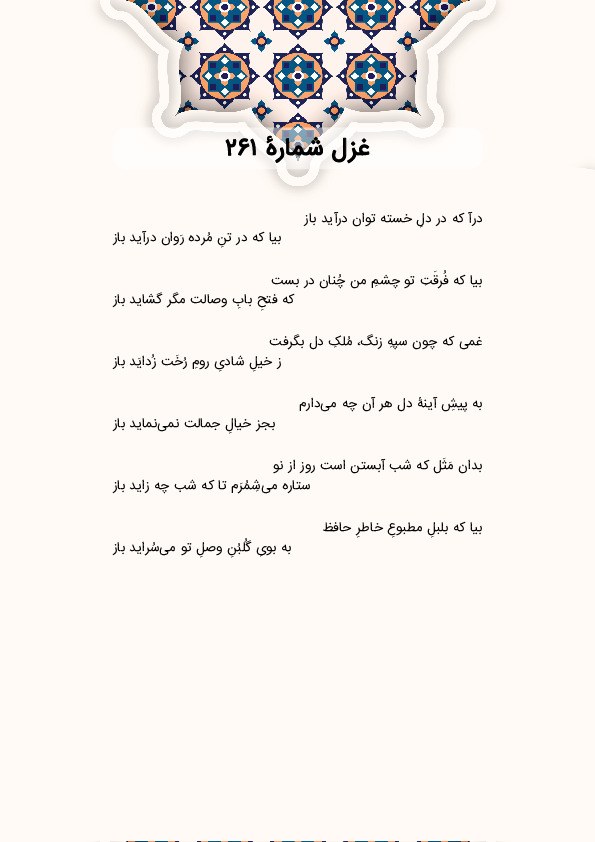 غزل شمارهٔ ۲۶۱
درآ که در دلِ خسته توان درآید باز
بیا که در تنِ مُرده رَوان درآید باز
بیا که فُرقَتِ تو چشمِ من چُنان در بست
که فتحِ بابِ وصالت مگر گشاید باز
غمی که چون سپهِ زنگ، مُلکِ دل بگرفت
ز خیلِ شادیِ رومِ رُخَت زُدایَد باز
به پیشِ آینهٔ دل هر آن چه می‌دارم
بجز خیالِ جمالت نمی‌نماید باز
بدان مَثَل که شب آبستن است روز از نو
ستاره می‌شِمُرَم تا که شب چه زاید باز
بیا که بلبلِ مطبوعِ خاطرِ حافظ
به بویِ گُلبُنِ وصلِ تو می‌سُراید باز